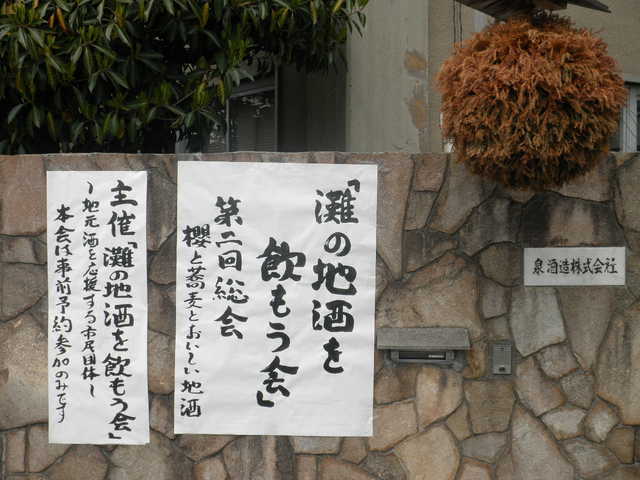 泉酒造株式会社
「灘の地酒を
飲もう会」
第二回総会
櫻と蕎麦とおいしい地酒
主催「灘の地酒を飲もう会」
~地元酒を応援する市民団体~
本会は事前予約参加のみです